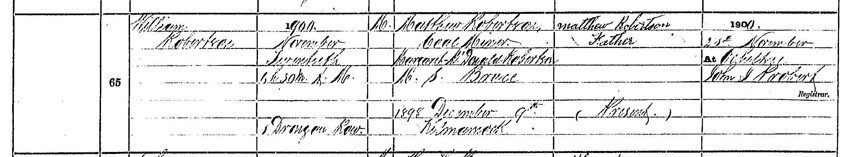 65
William
Robertson
1900
November
Seventeenth
6h 30m A. M.
5 Drongan Row
M.
Matthew Robertson,
Coal Miner
Margaret Donald Robertson
M. S. Bruce
1898 December 9th
Kilmarnock
Matthew Robertson
Father
(Present.)
1900.
November
At Ochiltree
John
Registrar.